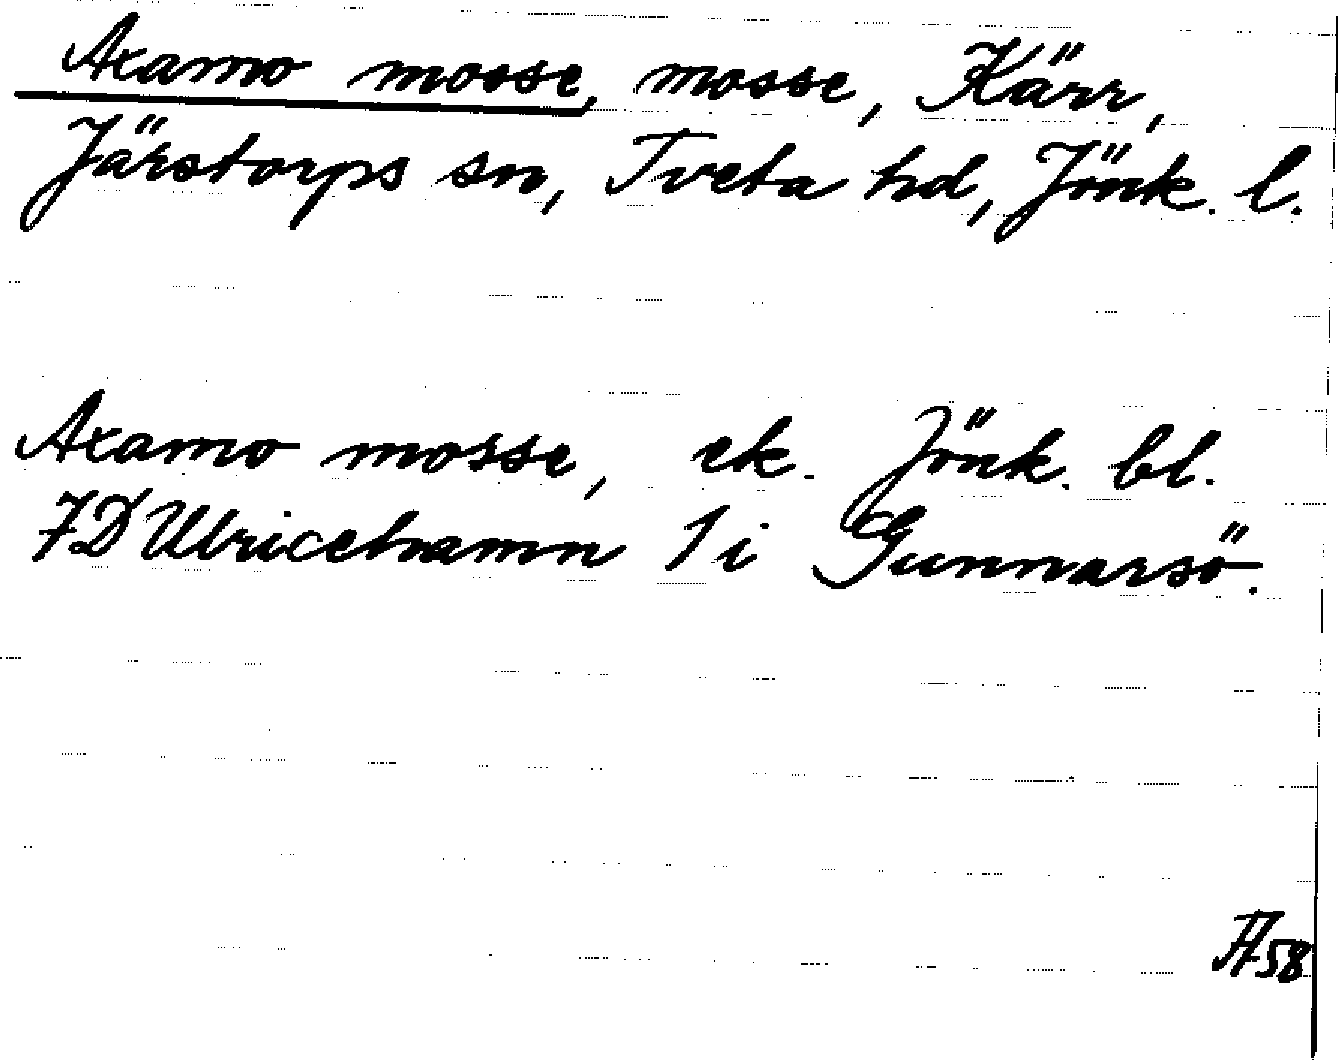 Axamo mosse, mosse, Kärr,
Järstorps sn, Tveta hd, Jönk. l.
Axamo mosse, ek. Jönk. bl.
7D Ulricehamn 1 i Gunnarsö.
58